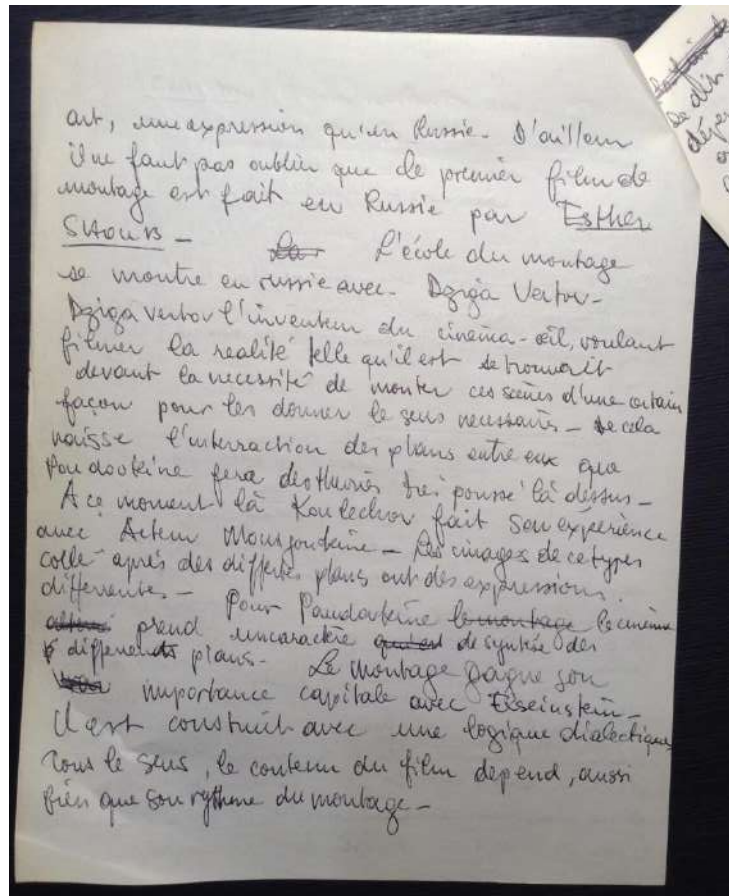 art, une expression qu'en Russie - D'ailleurs
il ne faut pas oublier que le premier film de
montage est fait en Russie par Esther
SHOUB - L'école du montage
se montre en russie avec - Dziga Vertov -
Dziga vertov l'inventeur du cinéma-œil, voulant
filmer la realité telle qu'il est se trouvait
devant la necessité de monter ces scènes d'une certain
façon pour les donner le sens necessaire - de cela
naisse l'interraction des plans entre eux que
Poudovkine fera des theories très poussé là dessus -
A ce moment là Koulechov fait son expérience
avec Acteur Mousjoukine - Les images de ce types
collé après des differtes plans ont des expressions
differentes - Pour Poudovkine le montage le cinéma
prend un caractère qui est de syntèse des
differents plans - Le montage gagne son
importance capitale avec Eiseinstein -
Il est construit avec une logique dialectique
Tous le sens, le contenu du film depend, aussi
bien que son rythme du montage -
de
dépe